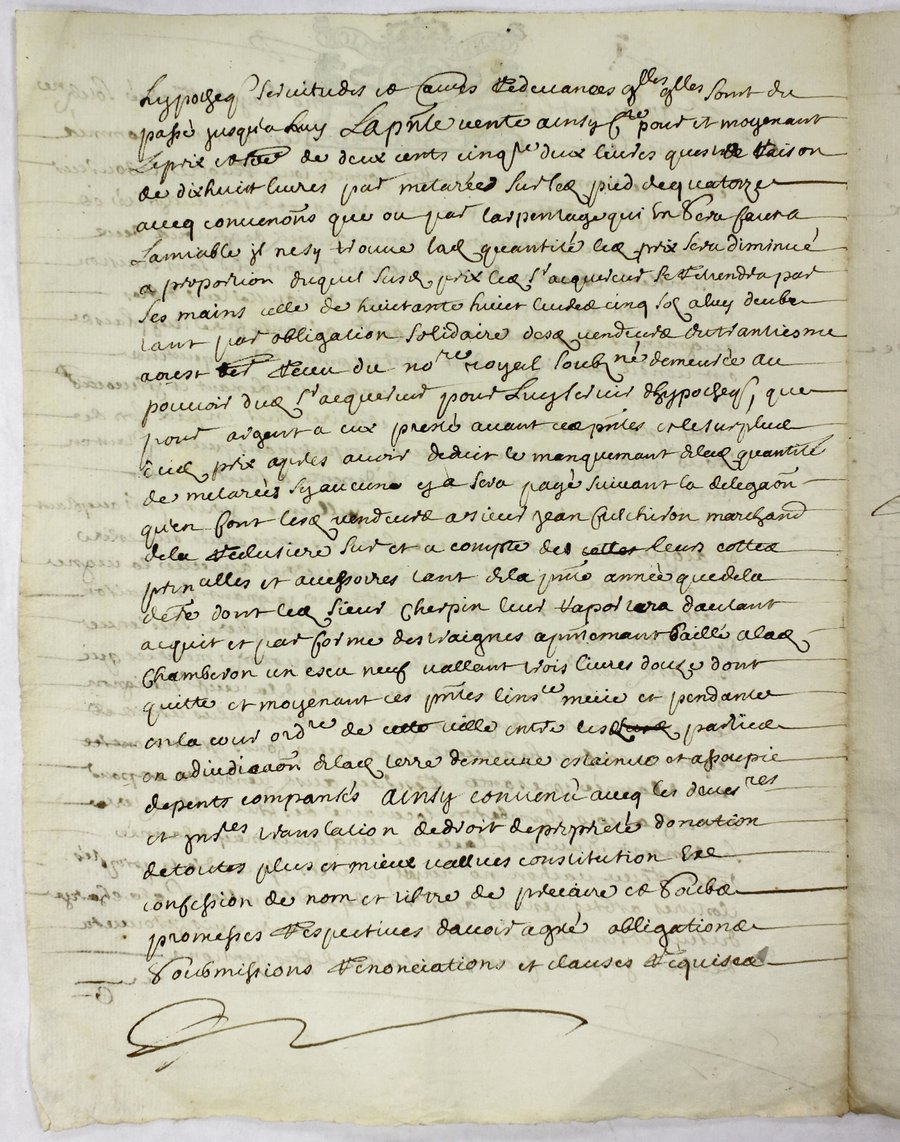 hypotheq servitudes et autres Redevances qlles qlles soint du
passé jusqua huy La pnte vente ainsy fte pour et moyenant
Le prix et de deux cents cinqte deux livres quest de Raison
de dixhuict livres par meterées sur led pied de quatorze
avecq convenons que ou par larpentage qui En Sera faict a
Lamiable jl ne sy trouve lad quantité led prix sera diminué
a proportion duquel susd prix led sr acquereur se Retiendra par
ses mains celle de huictante huict livres cinq sols a luy deube
tant par obligation solidaire desd vendeurs du trantiesme
aoust Receu du nore royal soubzné demeurée au
pouvoir dud sr acquereur pour Luy servir dhypotheq, que
pour argent a eux presté avant ces pntes et le surplus
dud prix apres avoir deduit le manquemant de lad quantité
de meterées sy aucune y a sera payé suivant la delegaon
quen font lesd vendeurs a sieur jean fulchiron marchand
de la sur et a compte de leurs cottes
prinalles et accessoires tant de la pnte année que de la
dont led sieur Cherpin leur Raportera dautant
acquit et par forme destraignes apntemant Baillé a lad
Chamberon un escu neuf vallant trois livres douze dont
quitte et moyenant ces pntes linsce meüe et pendante
en la cour ordre de cette ville entre lesd parties
en adiudicaon de lad terre demeure estainte et assoupie
depents compansés Ainsy convenu avecq les devesres
et jnves translation de droit de proprieté donation
de toutes plus et mieux vallues constitution Exe
confession de nom et tiltre de precaire et Soubz
promesses Respectives davoir agrée obligations
Soubmissions Renonciations et clauses Requises